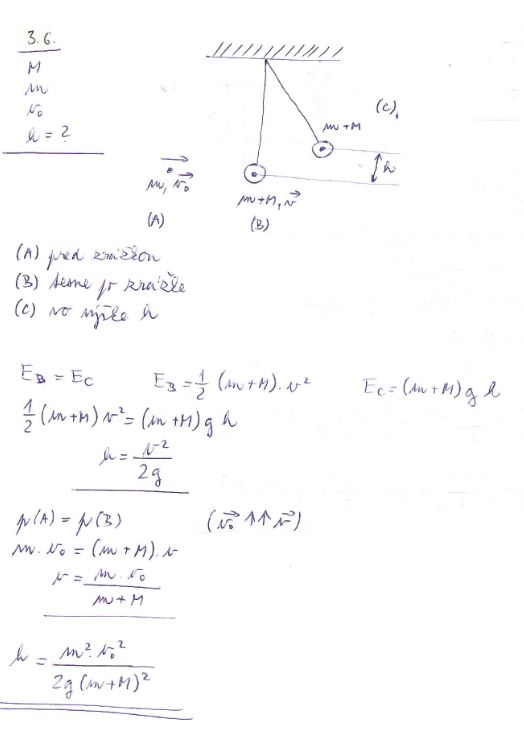 3.6.
M
m
v₀
h = ?
(C),
m+M
h
m, v₀→
m+M, v→
(A)
(B)
(A) pred zrážkou
(B) tesne po zrážke
(C) vo výške h
E_B = E_C    E_B = 1/2 (m+M)·v²    E_C = (m+M) g h
1/2 (m+M) v² = (m+M) g h
h = v²/2g
p(A) = p(B)    (v₀→ ↑↑ v→)
m·v₀ = (m+M)·v
v = m·v₀/m+M
h = m²·v₀²/2g(m+M)²